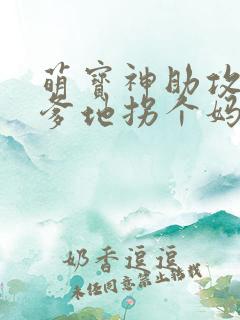 萌宝神助攻
爹地拐个妈
奶香逗逗
未经同意禁止转载